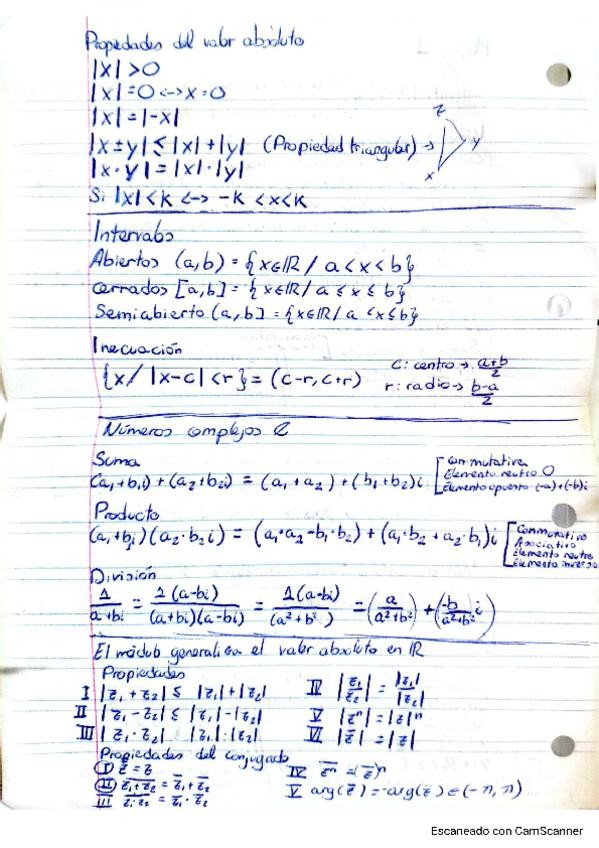 Propiedades del valor absoluto
|x| > 0
|x| = 0 <-> x = 0
|x| = |-x|
|x ± y| ≤ |x| + |y| (Propiedad triangular) →
z
y
x
|x · y| = |x| · |y|
Si |x| < K <-> -K < x < K
Intervalos
Abiertos (a, b) = {x∈ℝ / a < x < b}
Cerrados [a, b] = {x∈ℝ / a ≤ x ≤ b}
Semiabierto (a, b] = {x∈ℝ / a < x ≤ b}
Inecuación
{x / |x-c| < r} = (c-r, c+r)
c: centro → a+b/2
r: radio → b-a/2
Números complejos ℂ
Suma
(a₁+b₁i) + (a₂+b₂i) = (a₁+a₂) + (b₁+b₂)i
Conmutativa
Elemento neutro 0
Elemento opuesto (-a)+(-b)i
Producto
(a₁+b₁i)(a₂·b₂i) = (a₁·a₂-b₁·b₂) + (a₁·b₂+a₂·b₁)i
Conmutativo
Asociativo
Elemento neutro
Elemento inverso
División
1/a+bi = 1(a-bi)/(a+bi)(a-bi) = 1(a-bi)/(a²+b²) = (a/a²+b²) + (-b/a²+b² i)
El módulo generaliza el valor absoluto en ℝ
Propiedades
I |z₁ + z₂| ≤ |z₁| + |z₂|
II |z₁ - z₂| ≤ |z₁| - |z₂|
III |z₁ · z₂| |z₁| · |z₂|
IV |z₁/z₂| = |z₁|/|z₂|
V |zⁿ| = |z|ⁿ
VI |z̄| = |z|
Propiedades del conjugado
I z̿ = z
II z̅₁̅+̅z̅₂̅ = z̄₁ + z̄₂
III z̅₁̅·̅z̅₂̅ = z̄₁ · z̄₂
IV z̅ⁿ̅ = (z̄)ⁿ
V arg(z̄) = -arg(z) ∈ (-π, π)
Escaneado con CamScanner